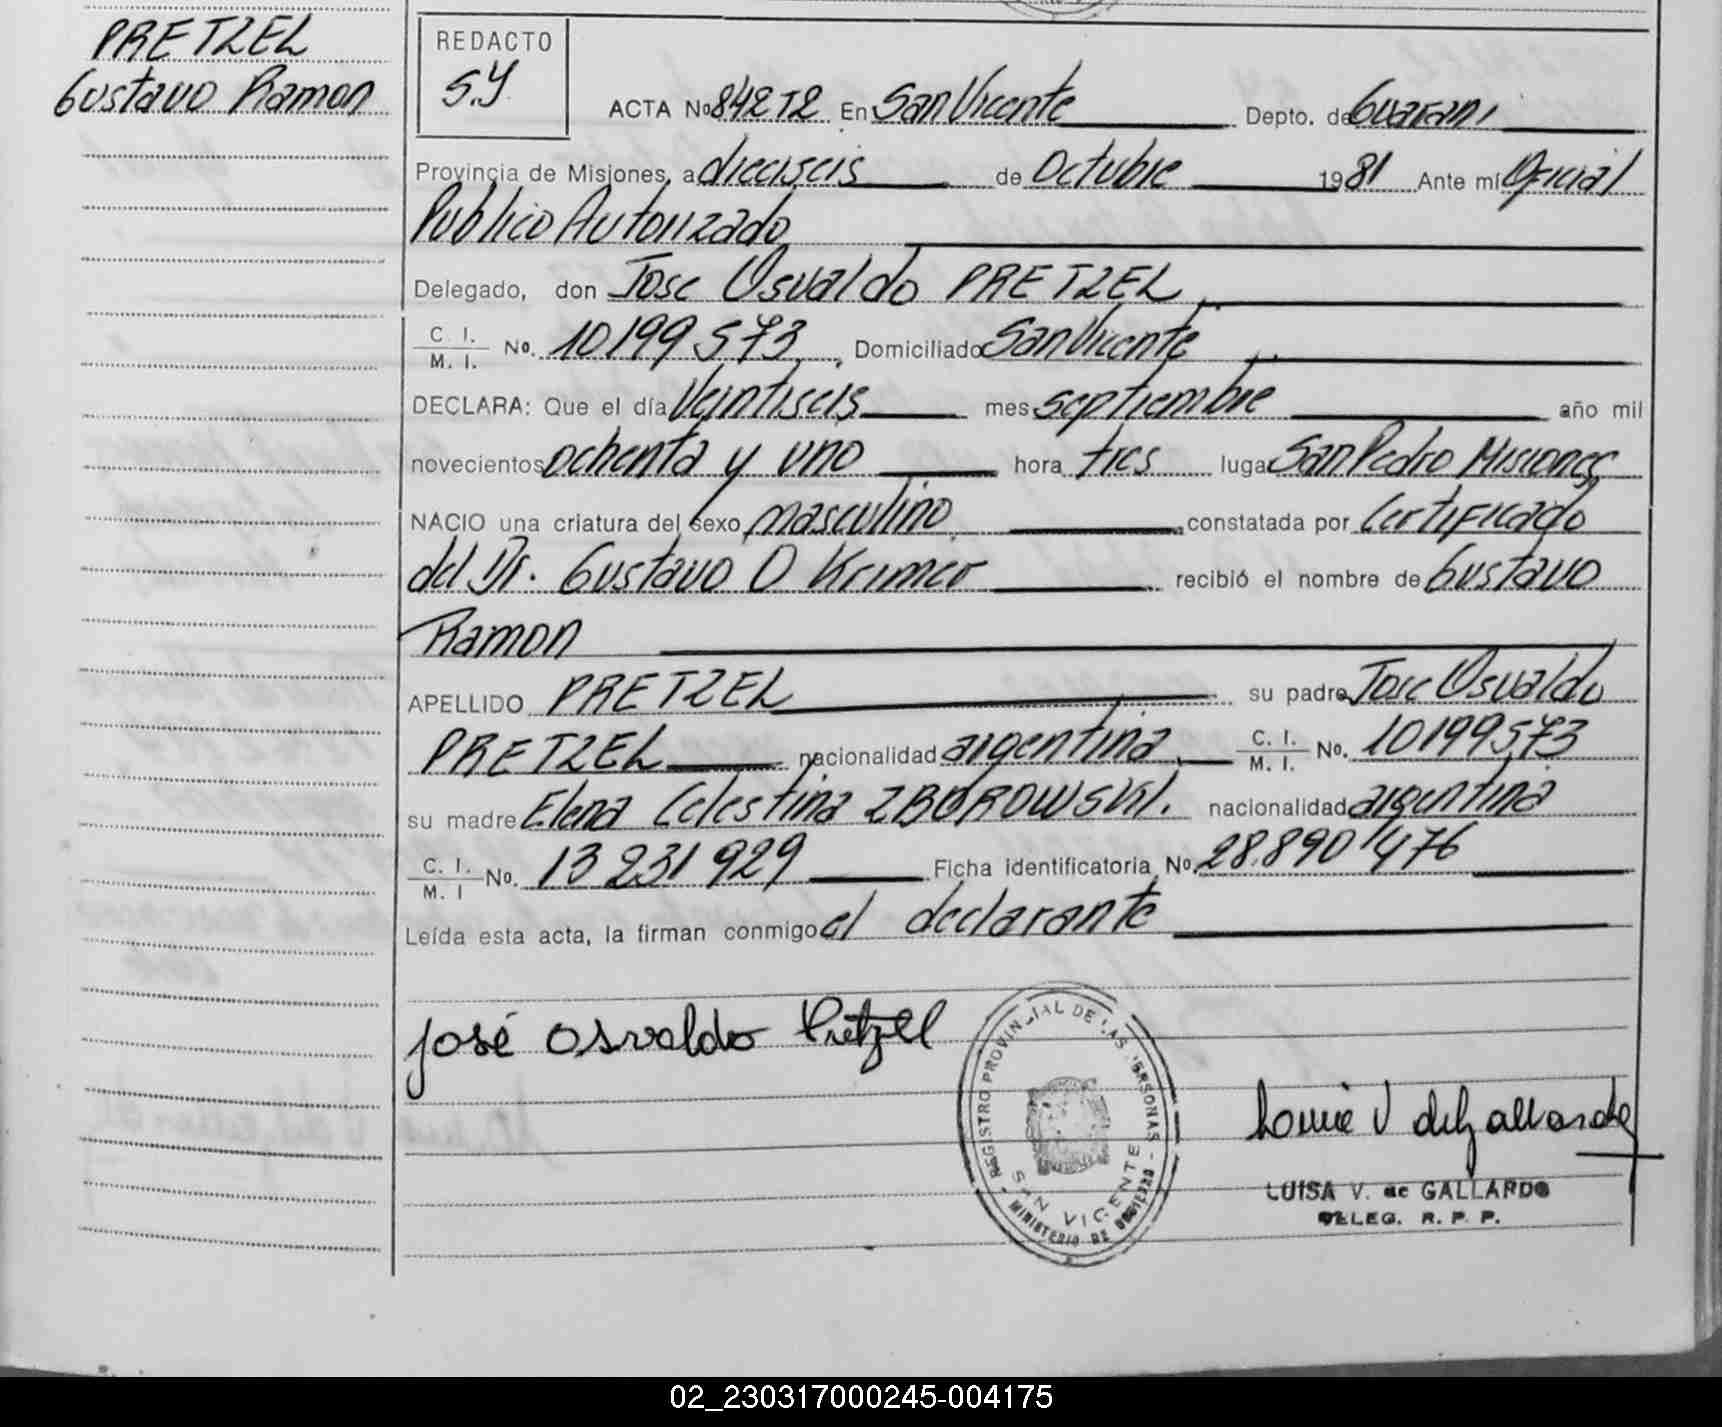 PRETZEL
Gustavo Ramon
REDACTO
S.Y.
ACTA No 842 T2 En San Vicente Depto. de Guarani
Provincia de Misiones, a dieciseis de Octubre 1981 Ante mí Oficial
Publico Autorizado
Delegado, don Jose Osvaldo PRETZEL
C. I.
M. I. No. 10199573, Domiciliado San Vicente
DECLARA: Que el día Veintiseis mes septiembre año mil
novecientos ochenta y uno hora tres lugar San Pedro Misiones
NACIO una criatura del sexo masculino constatada por Certificado
del Dr. Gustavo O Krimer recibió el nombre de Gustavo
Ramon
APELLIDO PRETZEL su padre Jose Osvaldo
PRETZEL nacionalidad argentina C. I.
M. I. No. 10199573
su madre Elena Celestina ZBOROWSKI. nacionalidad argentina
C. I.
M. I No. 13 231 929 Ficha identificatoria No. 28.890 476
Leída esta acta, la firman conmigo el declarante
José Osvaldo Pretzel
REGISTRO PROVINCIAL DE LAS PERSONAS
SAN VICENTE
MINISTERIO DE GOBIERNO
Louise V de Gallardo
LUISA V. de GALLARDO
DELEG. R. P. P.
02_230317000245-004175